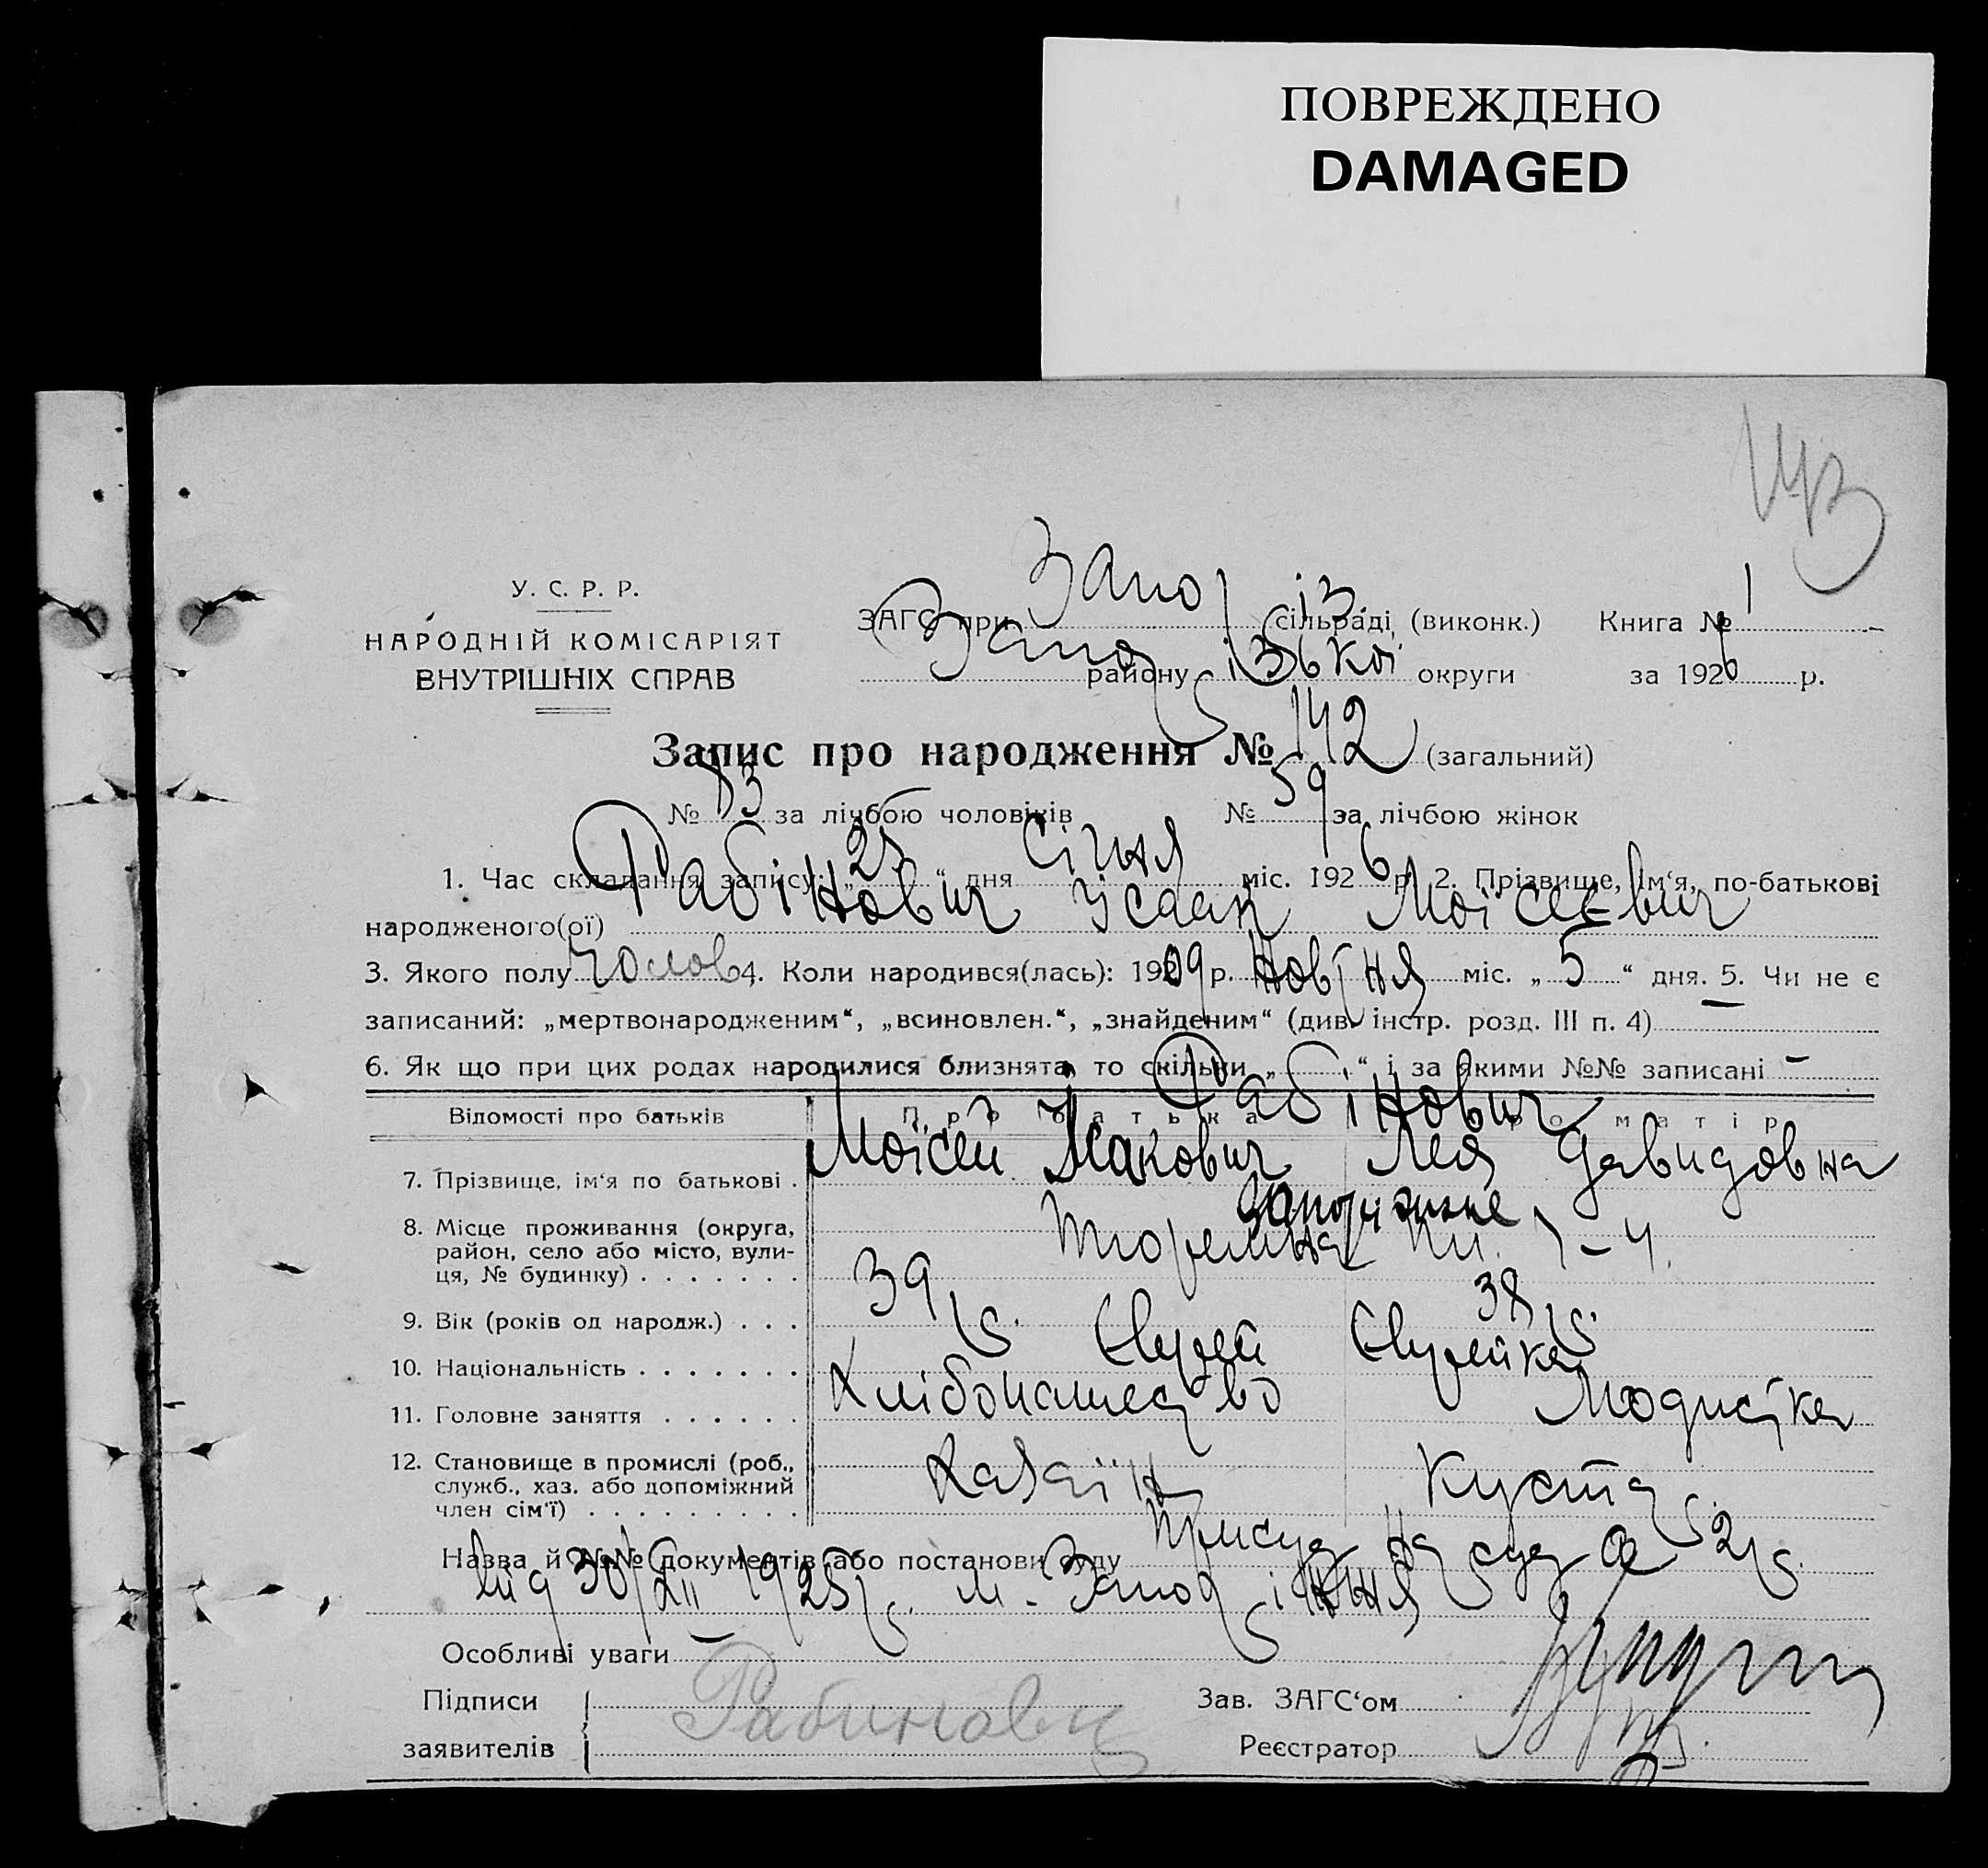 ПОВРЕЖДЕНО
DAMAGED
У. С. Р. Р.
НАРОДНІЙ КОМІСАРІЯТ
ВНУТРІШНІХ СПРАВ
ЗАГС при Запоріз. сільраді (виконк.) Книга № 1
Запорізької району округи за 1926 р.
Запис про народження № 142 (загальний)
№ 83 за лічбою чоловіків № 59 за лічбою жінок
1. Час складання запису: „25“ дня Січня міс. 1926 р. 2. Прізвище, ім‘я, по-батькові
народженого(ої) Рабінович Ісаак Моїсеєвич
3. Якого полу чолов 4. Коли народився(лась): 1909 р. Новтня міс. „5“ дня. 5. Чи не є
записаний: „мертвонародженим“, „всиновлен.“, „знайденим“ (див. інстр. розд. III п. 4) —
6. Як що при цих родах народилися близнята, то скільки „ “ і за якими №№ записані —
Відомості про батьків Про батька Про матір
Рабінович
7. Прізвище, ім‘я по батькові . Моїсей Ісакович Лея Давидовна
8. Місце проживання (округа, Запоріжжє
район, село або місто, вули-
ця, № будинку) . . . . . . .
9. Вік (років од народж.) . . . 39 р. 38 р.
10. Національність . . . . . . . Єврей Єврейка
11. Головне заняття . . . . . . Хлібопашество Модистка
12. Становище в промислі (роб.,
служб., хаз. або допоміжний Хазаїн Кустар
член сім‘ї) . . . . . . . . .
Назва й №№ документів або постанови суду Присуд Нарсуда 2 р.
від 30/XII 1925 р. м. Запоріжжя
Особливі уваги —
Підписи
заявителів Рабинович
Зав. ЗАГС‘ом
Реєстратор